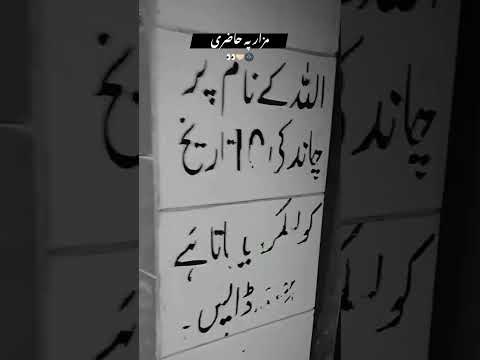 مزار پہ حاضری
اللہ کے نام پر
چاند کی 10 تاریخ
کو لنگر دیا جاتا ہے
ڈاپس۔